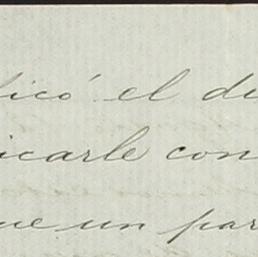 ficó el de
icarle con
ue un par